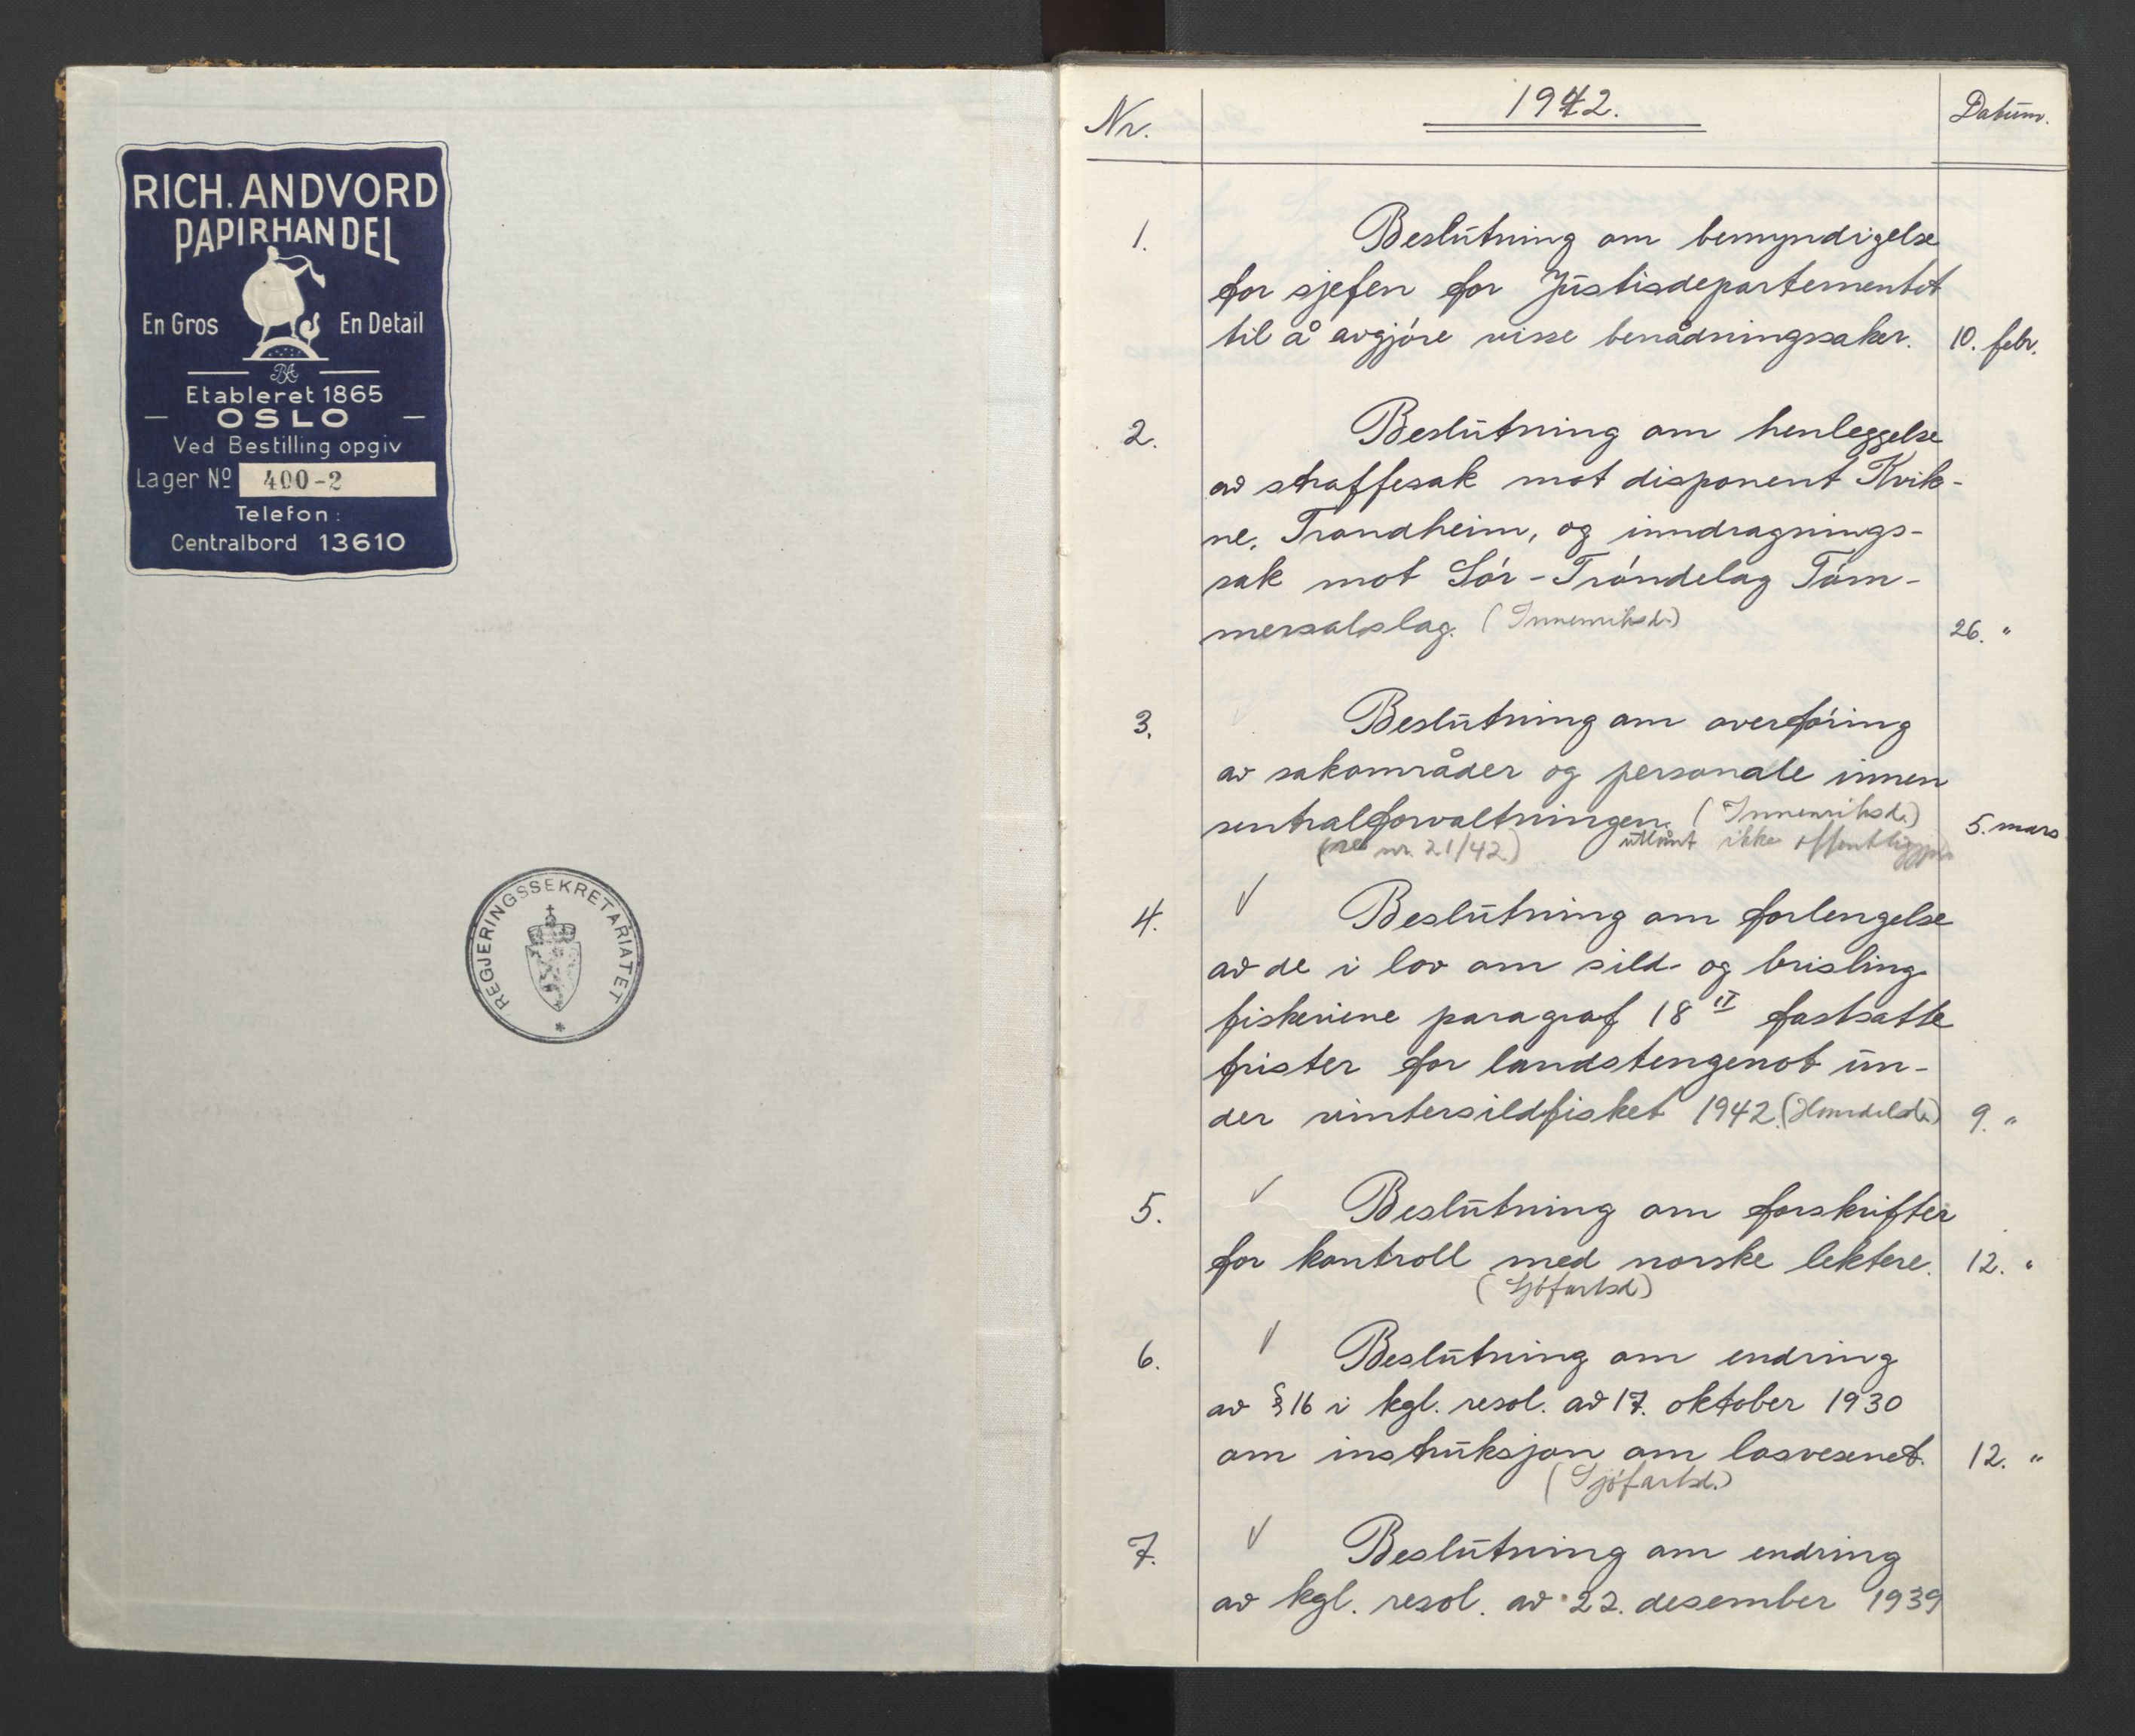 RICH. ANDVORD
PAPIRHANDEL
En Gros En Detail
RA
Etableret 1865
— OSLO —
Ved Bestilling opgiv
Lager Nº 400-2
Telefon:
Centralbord 13610
REGJERINGSSEKRETARIATET
*
Nr. 1942. Datum.
1. Beslutning om bemyndigelse
for sjefen for Justisdepartementet
til å avgjøre visse benådningssaker. 10. febr.
2. Beslutning om henleggelse
av straffesak mot disponent Kvik-
ne, Trondheim, og inndragnings-
sak mot Sør-Trøndelag Tøm-
mersalslag. (Innenriksd.) 26. "
3. Beslutning om overføring
av sakområder og personale innen
sentralforvaltningen. (Innenriksd.) 5. mars
(se nr. 21/42) utlånt ikke
4. Beslutning om forlengelse
av de i lov om sild- og brisling-
fiskeriene paragraf 18 II fastsatte
frister for landstengenot un-
der vintersildfisket 1942. (Handelsd.) 9. "
5. Beslutning om forskrifter
for kontroll med norske lektere. 12. "
(Sjøfartsd.)
6. Beslutning om endring
av § 16 i kgl. resol. av 17. oktober 1930
om instruksjon om losvesenet. 12. "
(Sjøfartsd.)
7. Beslutning om endring
av kgl. resol. av 22. desember 1939